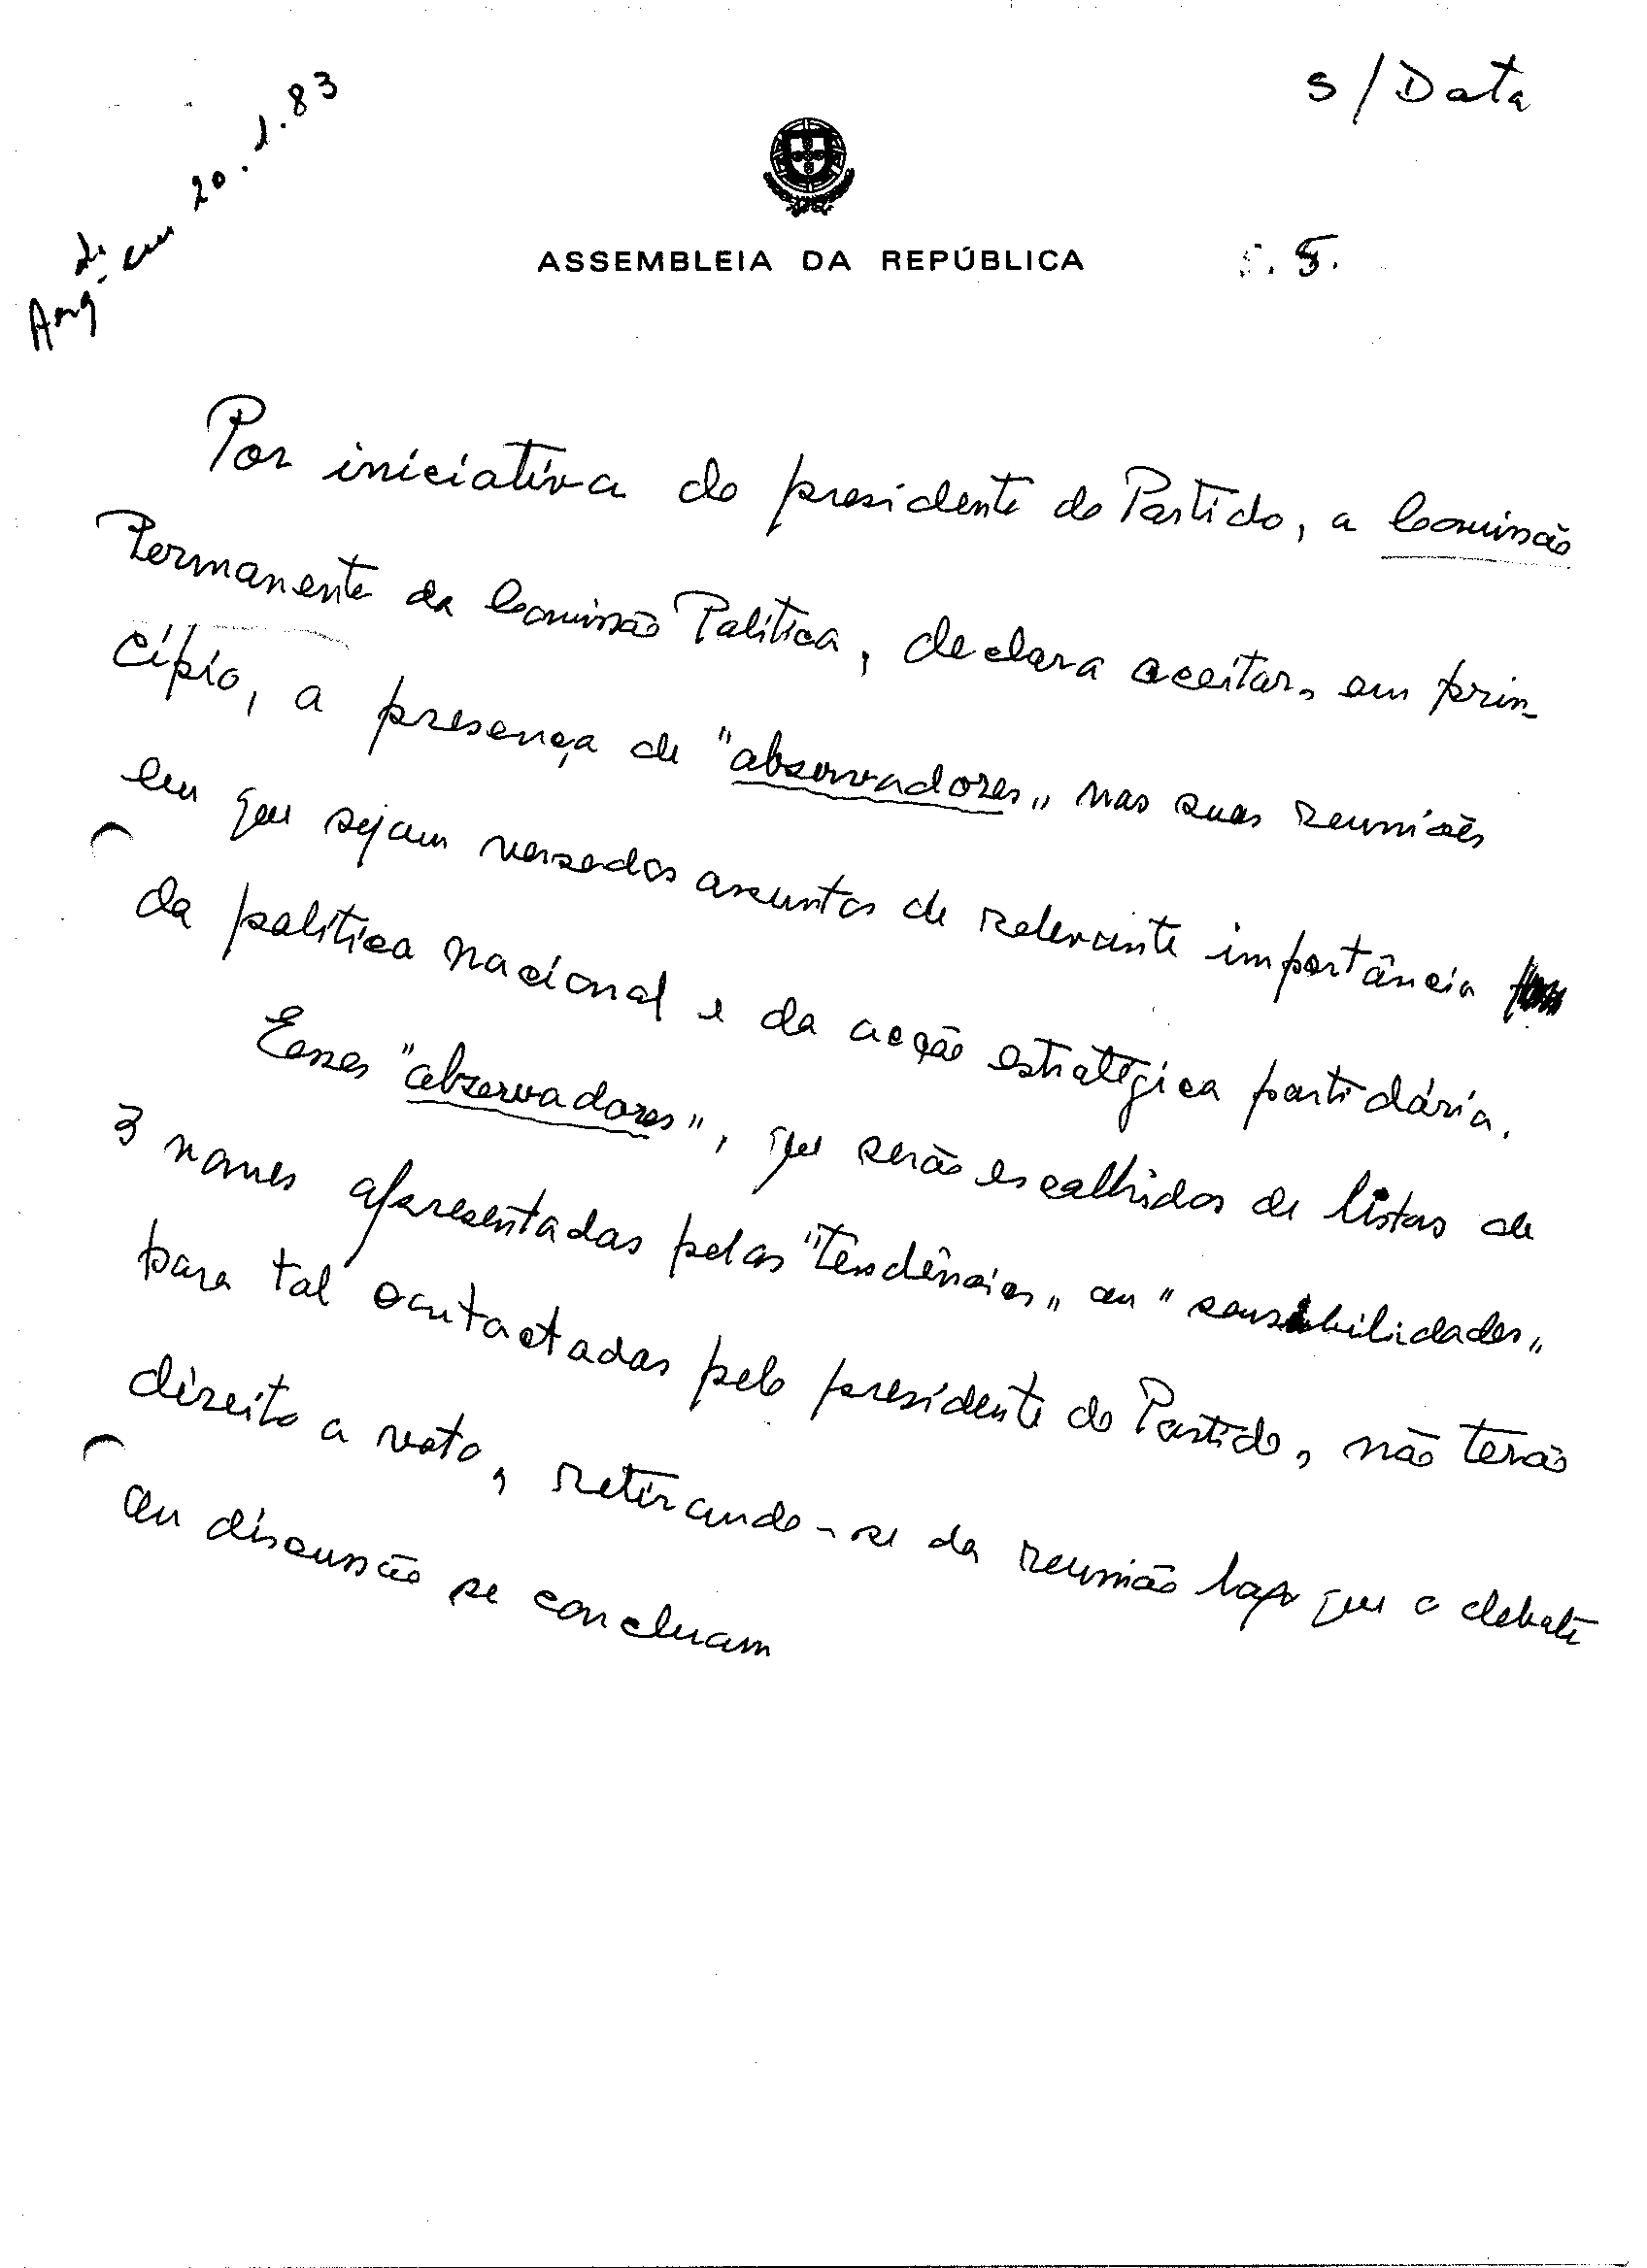 s/Data
Arq. em 20.1.83
ASSEMBLEIA DA REPÚBLICA
Por iniciativa do presidente do Partido, a Comissão
Permanente da Comissão Política, declara aceitar, em prin-
cípio, a presença de "observadores" nas suas reuniões
em que sejam versados assuntos de relevante importância
da política nacional e da acção estratégica partidária.
Esses "observadores", que serão escolhidos de listas de
3 nomes apresentadas pelas "tendências" ou "sensibilidades"
para tal contactadas pelo presidente do Partido, não terão
direito a voto, retirando-se da reunião logo que o debate
ou discussão se concluam